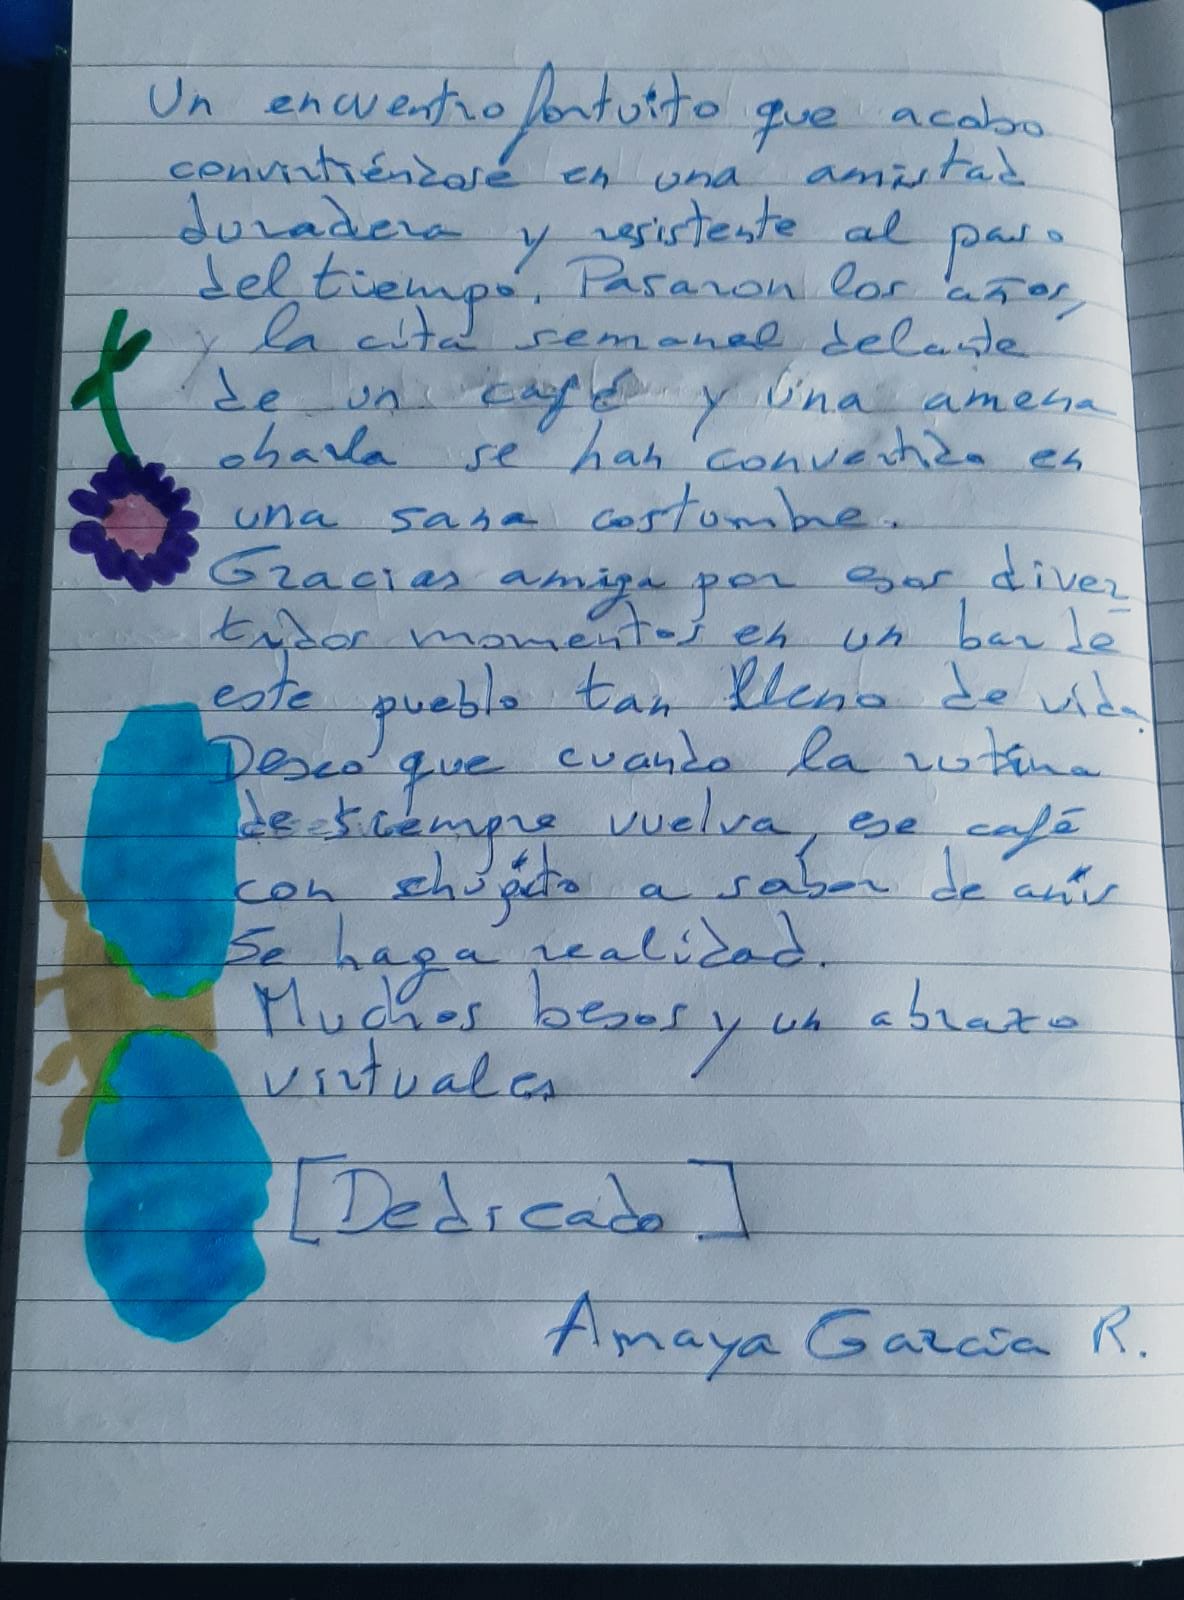 Un encuentro fortuito que acabo
convirtiéndose en una amistad
duradera y resistente al paso
del tiempo. Pasaron los años,
y la cita semanal delante
de un café y una amena
charla se han convertido en
una sana costumbre.
Gracias amiga por esos diver
tidos momentos en un bar de
este pueblo tan lleno de vida.
Deseo que cuando la rutina
de siempre vuelva, ese café
con chupito a sabor de anís
se haga realidad.
Muchos besos y un abrazo
virtuales
[Dedicado]
Amaya García R.